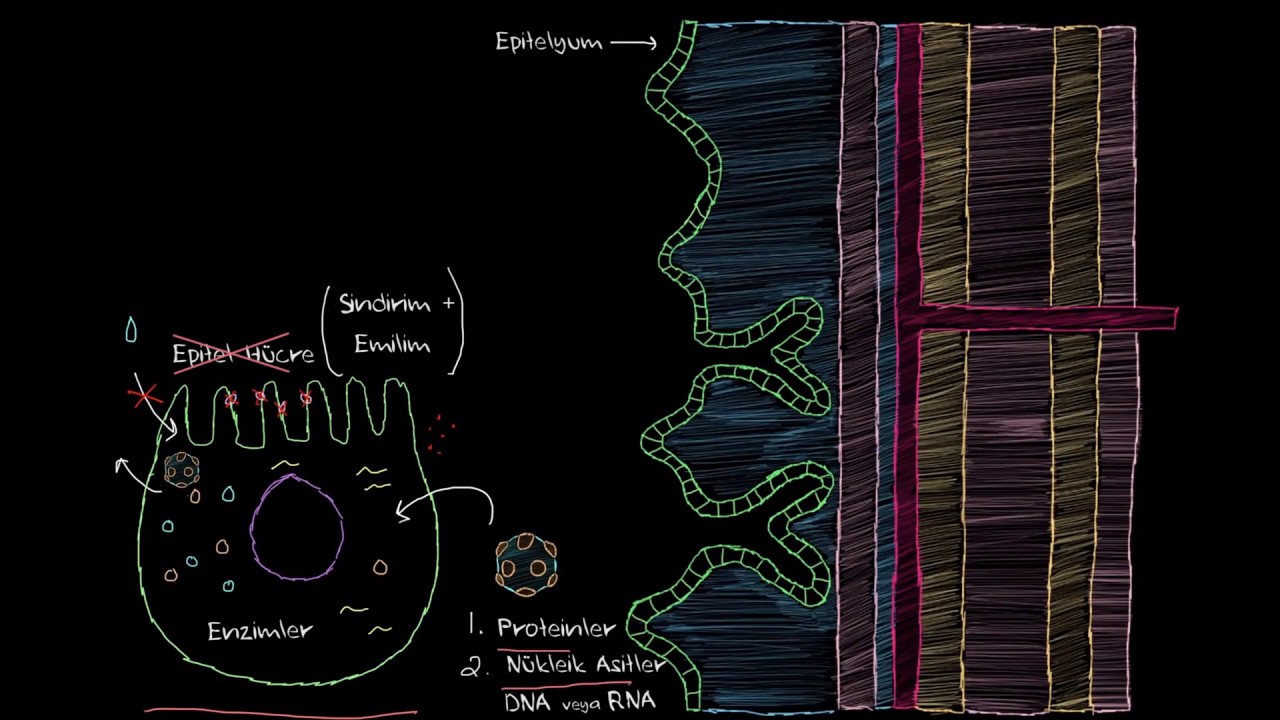 Epitelyum
Sindirim +
Emilim
Epitel Hücre
Enzimler
1. Proteinler
2. Nükleik Asitler
DNA veya RNA